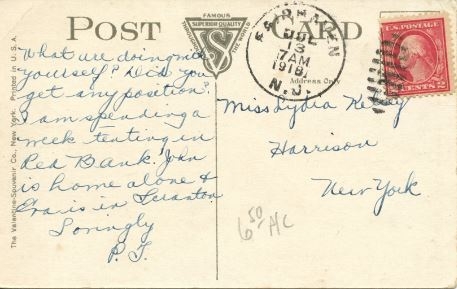 POST CARD
FAMOUS
SUPERIOR QUALITY
THROUGHOUT
THE WORLD
VS
FAIR HAVEN
JUL
13
7AM
1918
N.J.
U.S. POSTAGE
2 CENTS 2
Address Only
The Valentine-Souvenir Co., New York. Printed in U.S.A.
What are doing with
yourself? Did you
get any position?
I am spending a
week tenting in
Red Bank. John
is home alone &
is in Scranton
Lovingly
P. J.
Miss Lydia
Harrison
New York
6 50 A/C